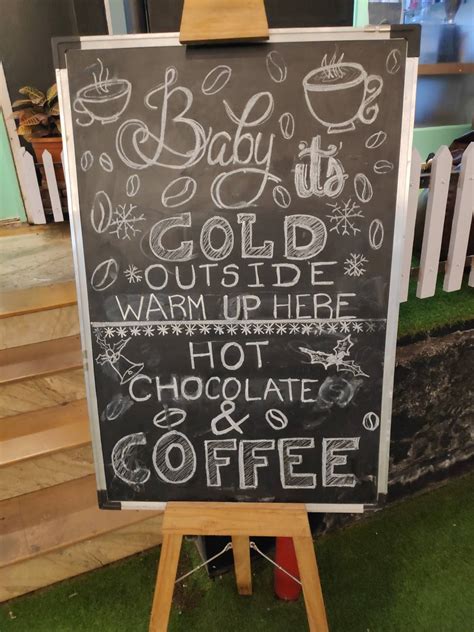 Baby it's
COLD
OUTSIDE
WARM UP HERE
HOT
CHOCOLATE
&
COFFEE